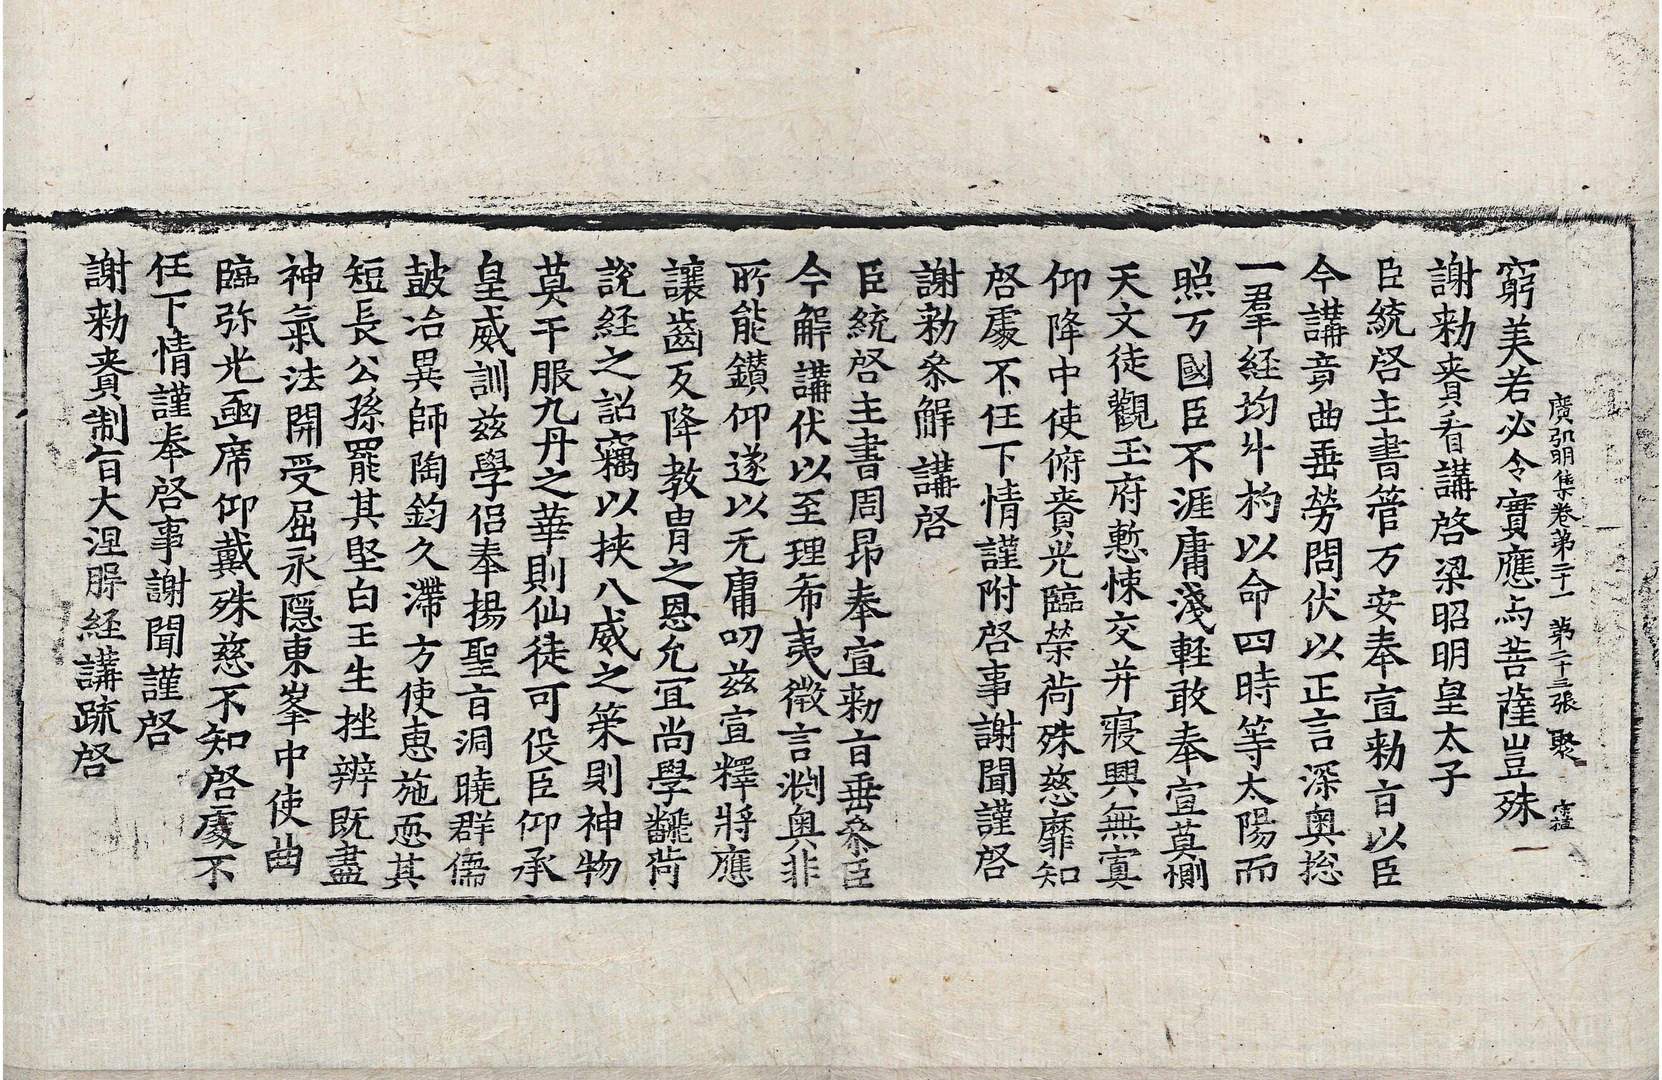 廣弘明集卷第二十一　第二十三張　聚
窮美若必令實應与菩薩豈殊
謝勑賚看講啓梁昭明皇太子
臣統啓主書管万安奉宣勑旨以臣
今講竟曲垂勞問伏以正言深奥総
一羣経均斗杓以命四時等太陽而
照万國臣不涯庸淺軽敢奉宣莫測
天文徒觀玉府慙悚交并寢興無寘
仰降中使俯賚光臨榮荷殊慈靡知
啓處不任下情謹附啓事謝聞謹啓
謝勑叅解講啓
臣統啓主書周昂奉宣勑旨垂叅臣
今解講伏以至理希夷微言渕奥非
所能鑚仰遂以无庸叨兹宣釋將應
讓齒反降教冑之恩允冝尚學翻荷
說経之詔竊以挾八威之策則神物
莫干服九丹之華則仙徒可役臣仰承
皇威訓兹學侣奉揚聖旨洞曉群儒
鼓冶異師陶鈞久滯方使惠施恧其
短長公孫罷其堅白王生挫辨既盡
神氣法開受屈永隠東峯中使曲
臨弥光函席仰戴殊慈不知啓處不
任下情謹奉啓事謝聞謹啓
謝勑賚制旨大涅槃経講疏啓